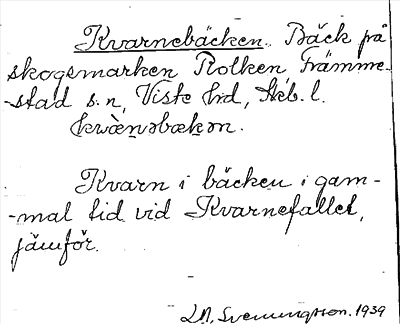 Kvarnebäcken. Bäck på
skogsmarken Rolken Främme-
-stad s.n, Viste hd, Skb. l.
kwæ̀ṇəbækən.
Kvarn i bäcken i gam-
-mal tid vid Kvarnefallet,
jämför.
Svenningsson. 1939